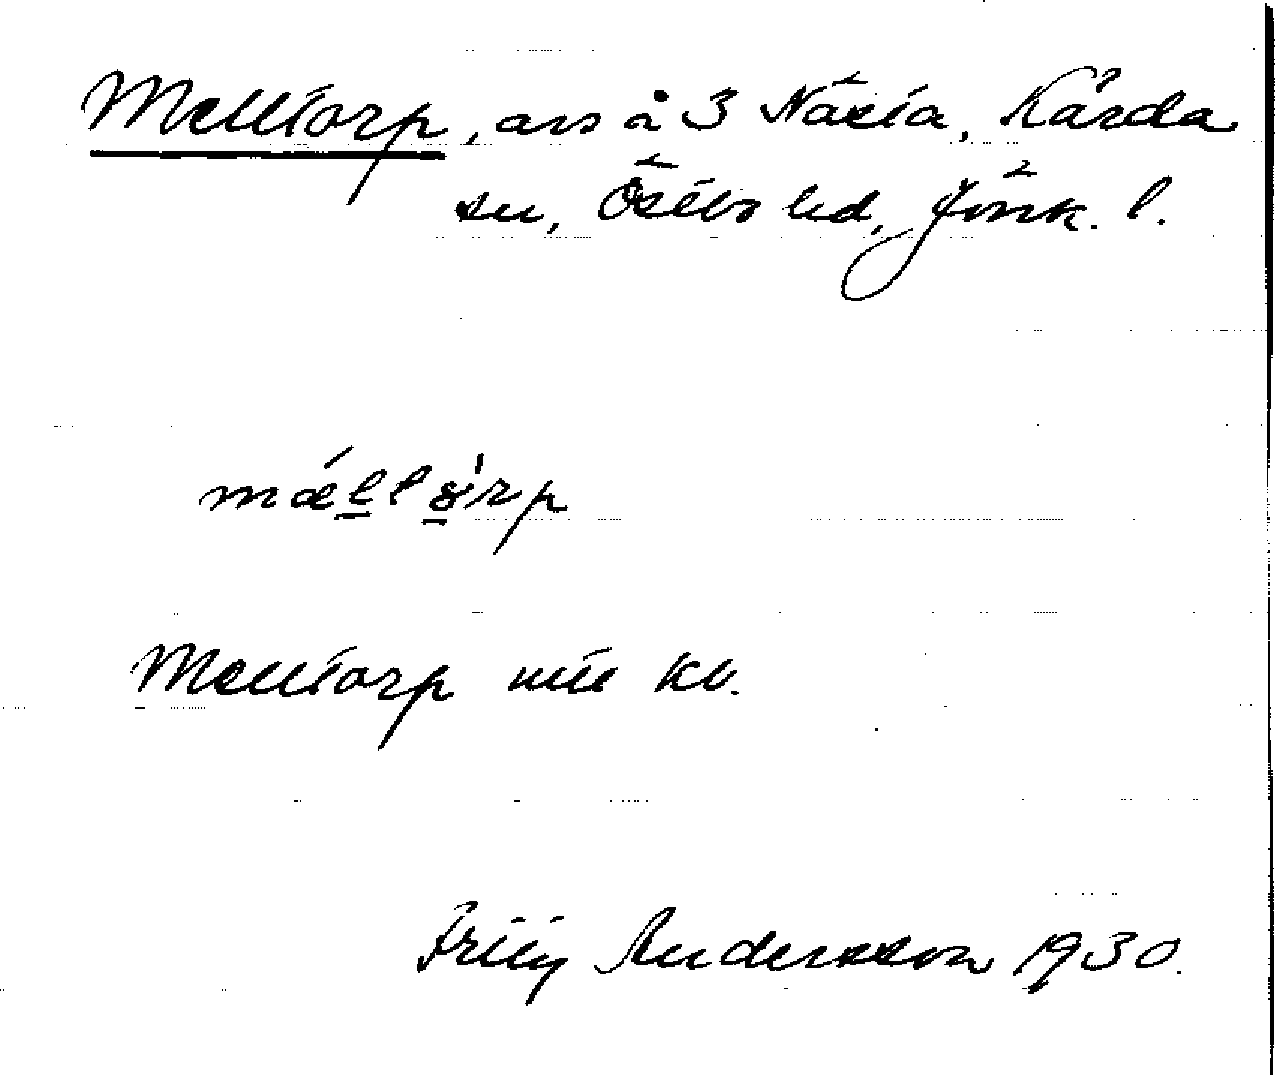 Melltorp, avs å 3 Näcta, Kärda
sn, Östbo hd, Jönk. l.
mǽlltɷ̀rp
Melltorp utt kb.
Fritz Andersson 1930.